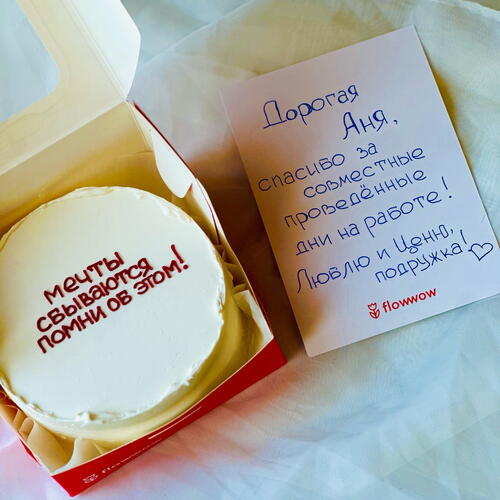 мечты
сбываются
помни об этом!
flowwow
Дорогая
Аня,
спасибо за
совместные
проведённые
дни на работе!
Люблю и Ценю,
подружка!
flowwow